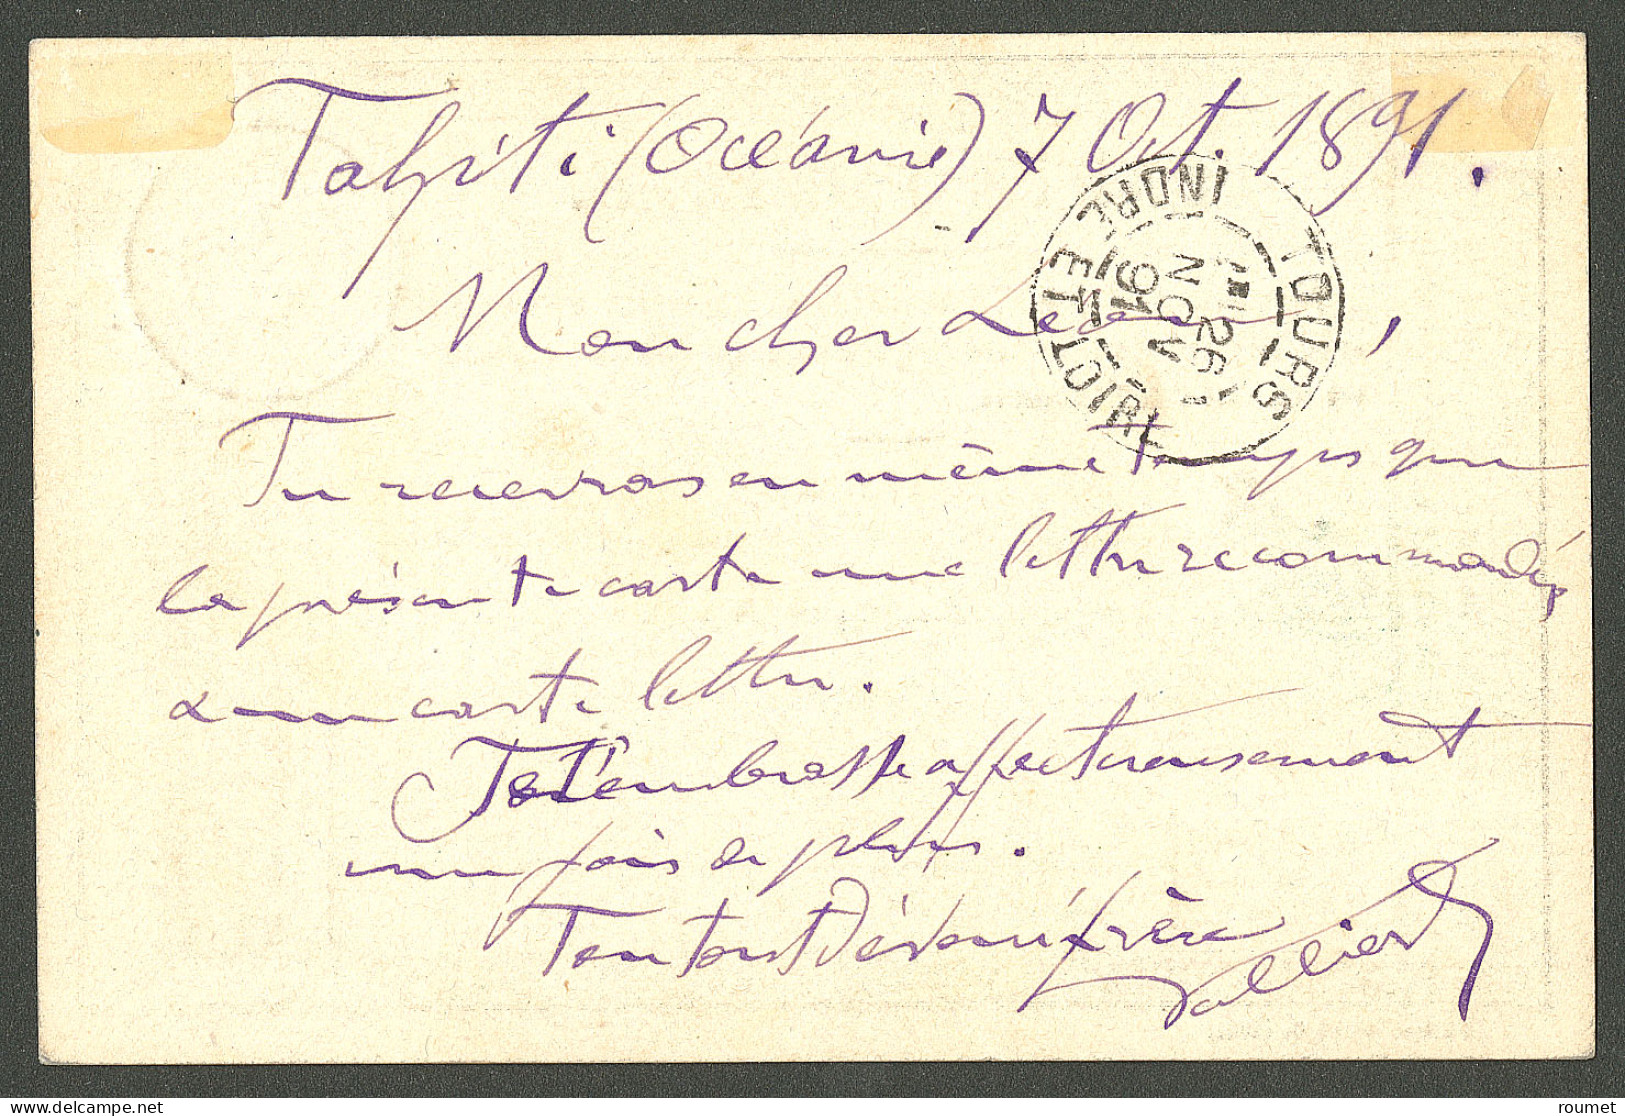 Tahiti (Océanie) 7 Oct. 1891.
Mon cher
Tu recevras en même temps que
la présente carte une lettre recommandée,
& une carte lettre.
Je t'embrasse affectueusement
une fois de plus.
Ton tout dévoué frère
TOURS
INDRE ET LOIRE
26
NOV
91
roumet